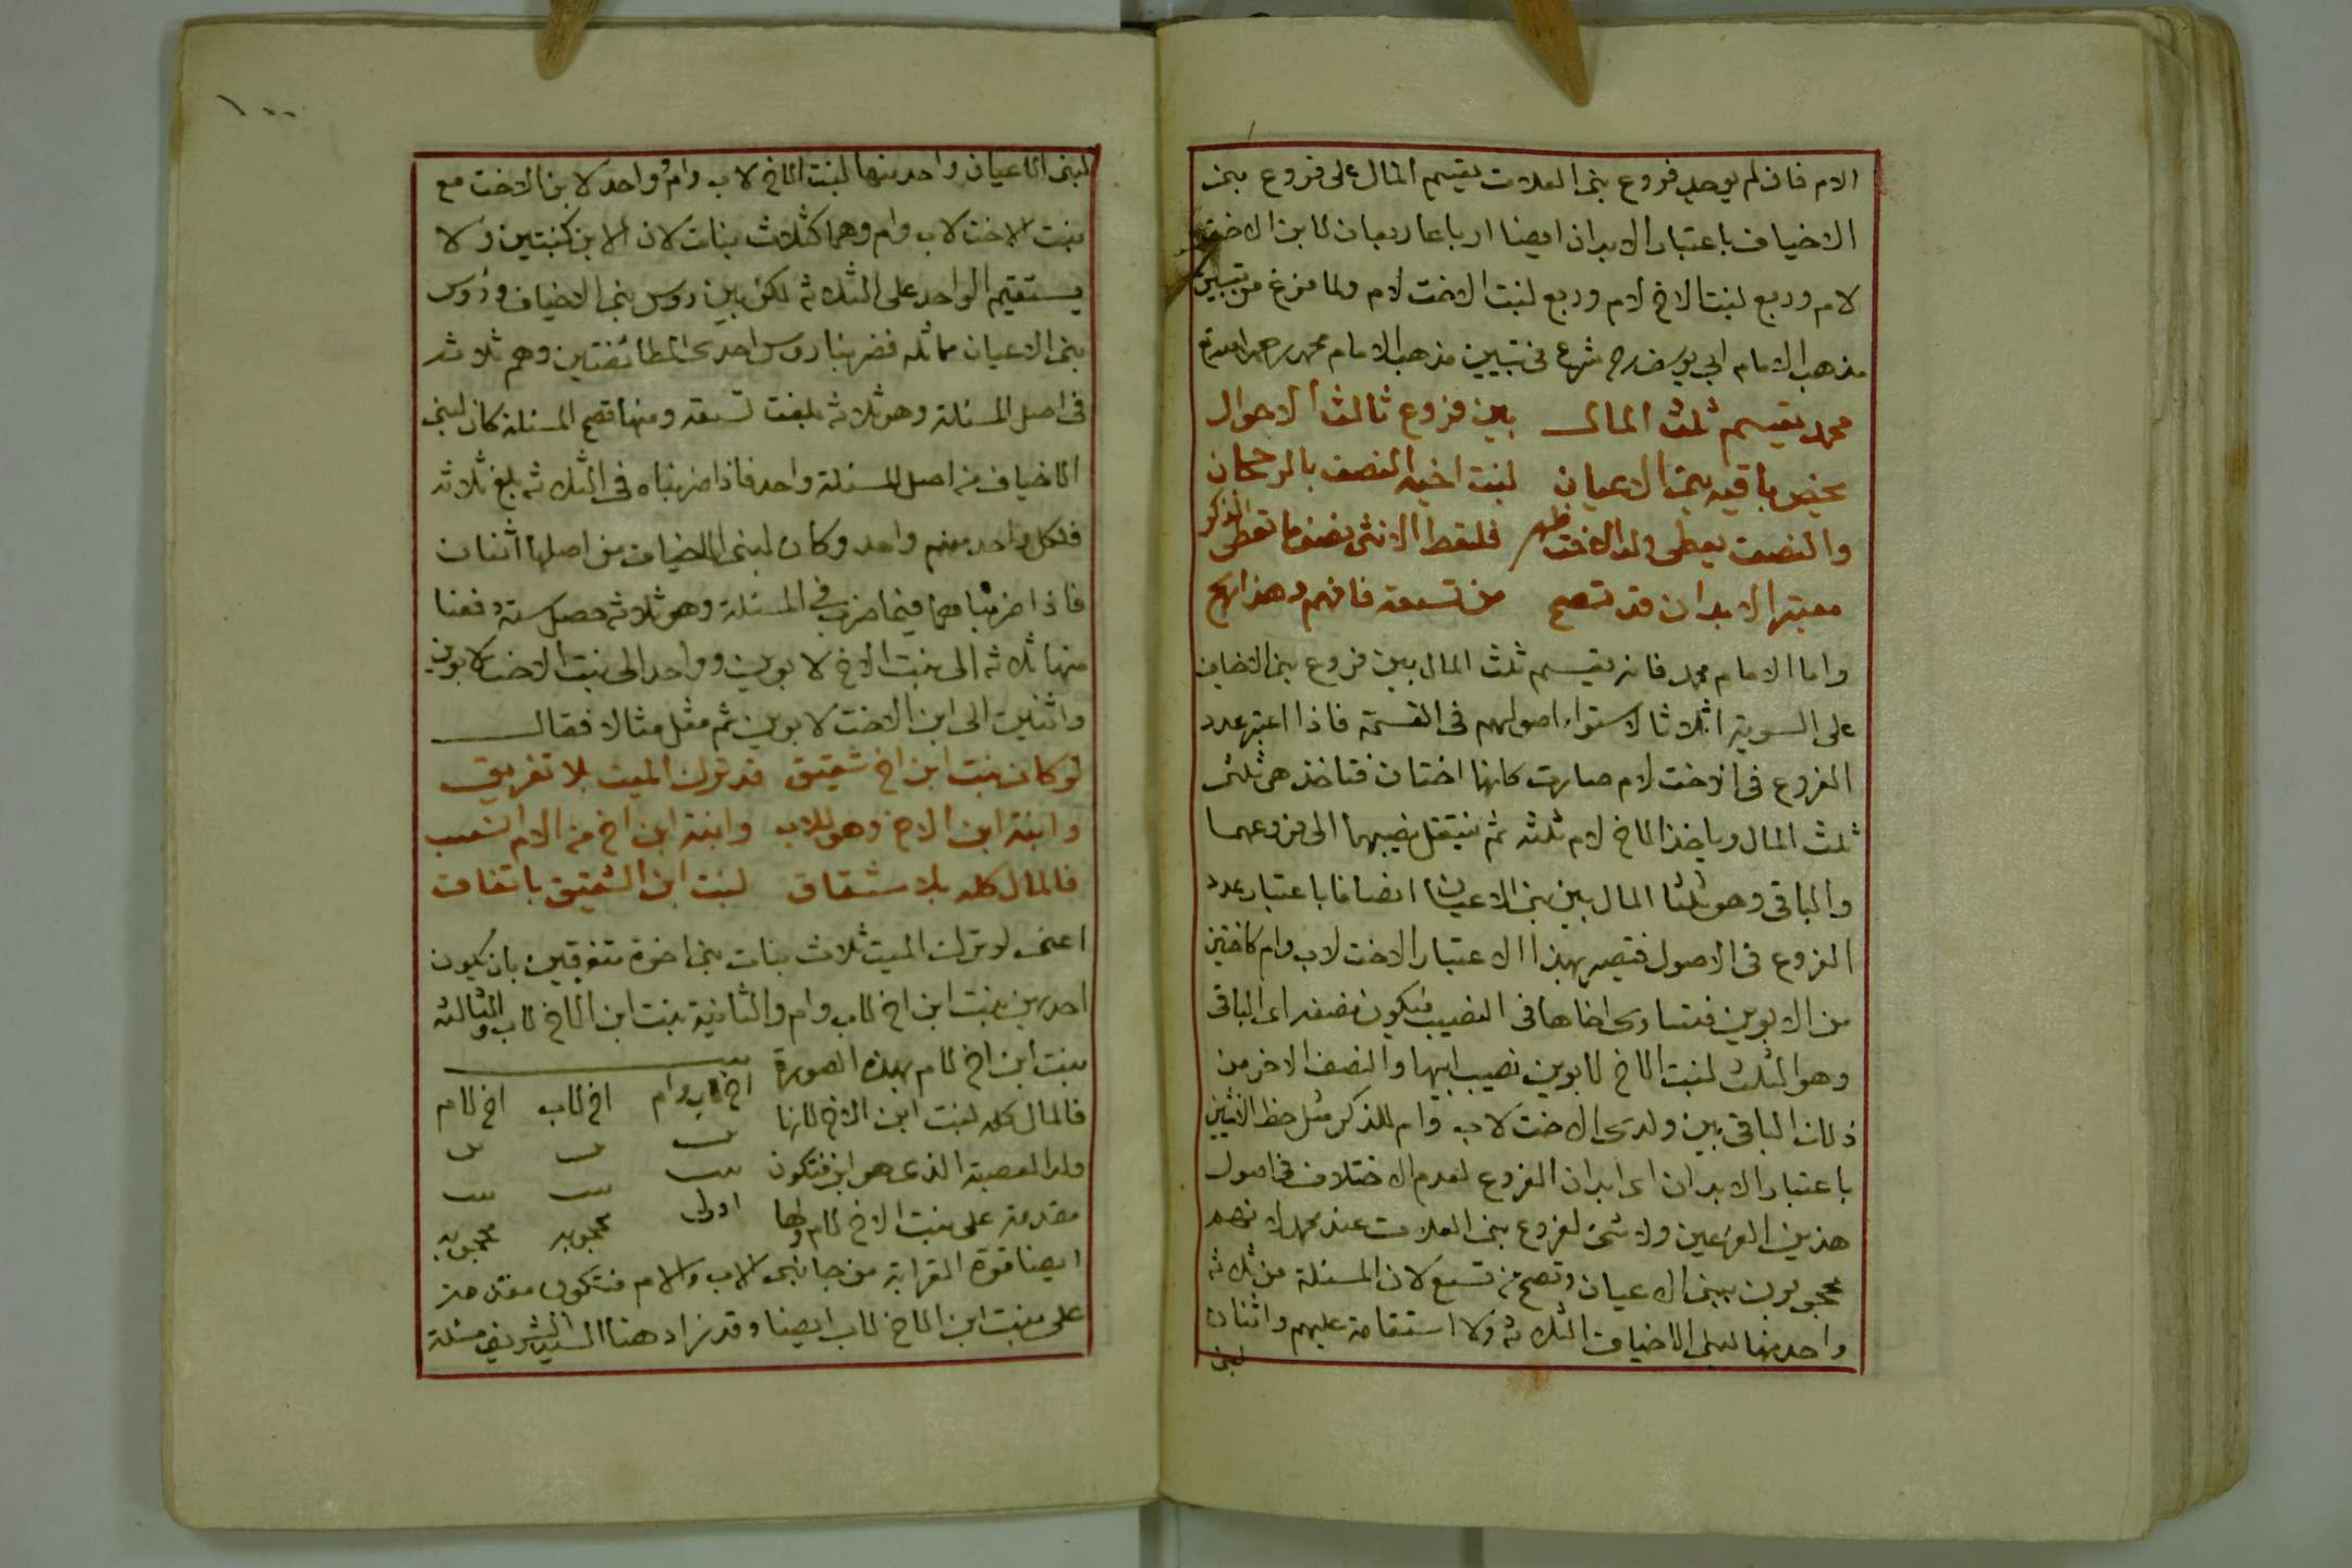 الام فان لم يوجد فروع بنى العلات يقسم المال على فروع بنى
الاخياف باعتبار الابدان ايضا ارباعا ربعان لابن الاخت
لام وربع لبنت الاخ لام وربع لبنت الاخت لام ولما فرغ من تبيين
مذهب الامام ابي يوسف رح شرع فى تبيين مذهب الامام محمد رحمه الله
محمد يقسم ثلث المال بين فروع ثالث الاحوال
يخص باقيه بنى الاعيان لبنت اخيه النصف بالرجحان
والنصف يعطى ولد الاخت ظهر فلتعط الانثى نصف ما تعطى الذكر
معتبر الابدان قد تصح من تسعة فافهم وهذا
واما الامام محمد فانه يقسم ثلث المال بين فروع بنى الاخياف
على السوية اثلاثا لاستواء اصولهم فى القسمة فاذا اعتبر عدد
الفروع فى الاخت لام صارت كانها اختان فتاخذ هى ثلثى
ثلث المال وياخذ الاخ لام ثلثه ثم ينتقل نصيبهما الى فروعهما
والباقى وهو ثلثا المال بين بنى الاعيان انصافا باعتبار عدد
الفروع فى الاصول فتصير بهذا الاعتبار الاخت لاب وام كاختين
من الابوين فتساوى اخاها فى النصيب فيكون نصفه اى الباقى
وهو الثلث لبنت الاخ لابوين نصيب ابيها والنصف الاخر من
ذلك الباقى بين ولدى الاخت لاب وام للذكر مثل حظ الانثيين
باعتبار الابدان اى ابدان الفروع لعدم الاختلاف فى اصول
هذين الفرعين ولا شئ لفروع بنى العلات عند محمد لانهم
محجوبون ببنى الاعيان وتصح من تسع لان المسئلة من ثلاثة
واحد منها لبنى الاخياف الثلاثة ولا استقامة عليهم واثنان
لبنى
١٠٠
لبنى الاعيان واحد منها لبنت الاخ لاب وام وواحد لابن الاخت مع
بنت الاخت لاب وام وهما كثلاث بنات لان الابن كبنتين ولا
يستقيم الواحد على الثلاثة لكن بين روس بنى الاخياف وروس
بنى الاعيان مماثله فضربنا روس احدى الطائفتين وهم ثلاثة
فى اصل المسئلة وهو ثلاثة بلغت تسعة ومنها تصح المسئلة كان لبنى
الاخياف من اصل المسئلة واحد فاذا ضربناه فى الثلاثة بلغ ثلاثة
فلكل واحد منهم واحد وكان لبنى الاخياف من اصلها اثنان
فاذا ضربناهما فيما ضرب فى المسئلة وهو ثلاثة حصل ستة دفعنا
منها ثلاثة الى بنت الاخ لابوين وواحد الى بنت الاخت لابوين
واثنين الى ابن الاخت لابوين ثم مثل مثالا فقال
لو كان بنت ابن اخ شقيق قد ترك الميت بلا تفريق
وابنة ابن الاخ وهو للاب وابنة ابن اخ من الام انتسب
فالمال كله بلا شقاق لبنت ابن الشقيق باتفاق
اعنى لو ترك الميت ثلاث بنات بنى اخوة متفرقين بان يكون
احديهن بنت ابن اخ لاب وام والثانية بنت ابن الاخ لاب والثالثة
بنت ابن اخ لام بهذه الصورة
اخ لاب وام اخ لاب اخ لام
فالمال كله لبنت ابن الاخ لانها
بن بن بن
ولد العصبة الذى هو ابن فتكون
بنت بنت بنت
مقدمة على بنت الاخ لام ولها
اولى محجوبه محجوبه
ايضا قوة القرابة من جانبى الاب والام فتكون مقدمة
على بنت ابن الاخ لاب ايضا وقد زاد هنا السيد الشريف مسئلة